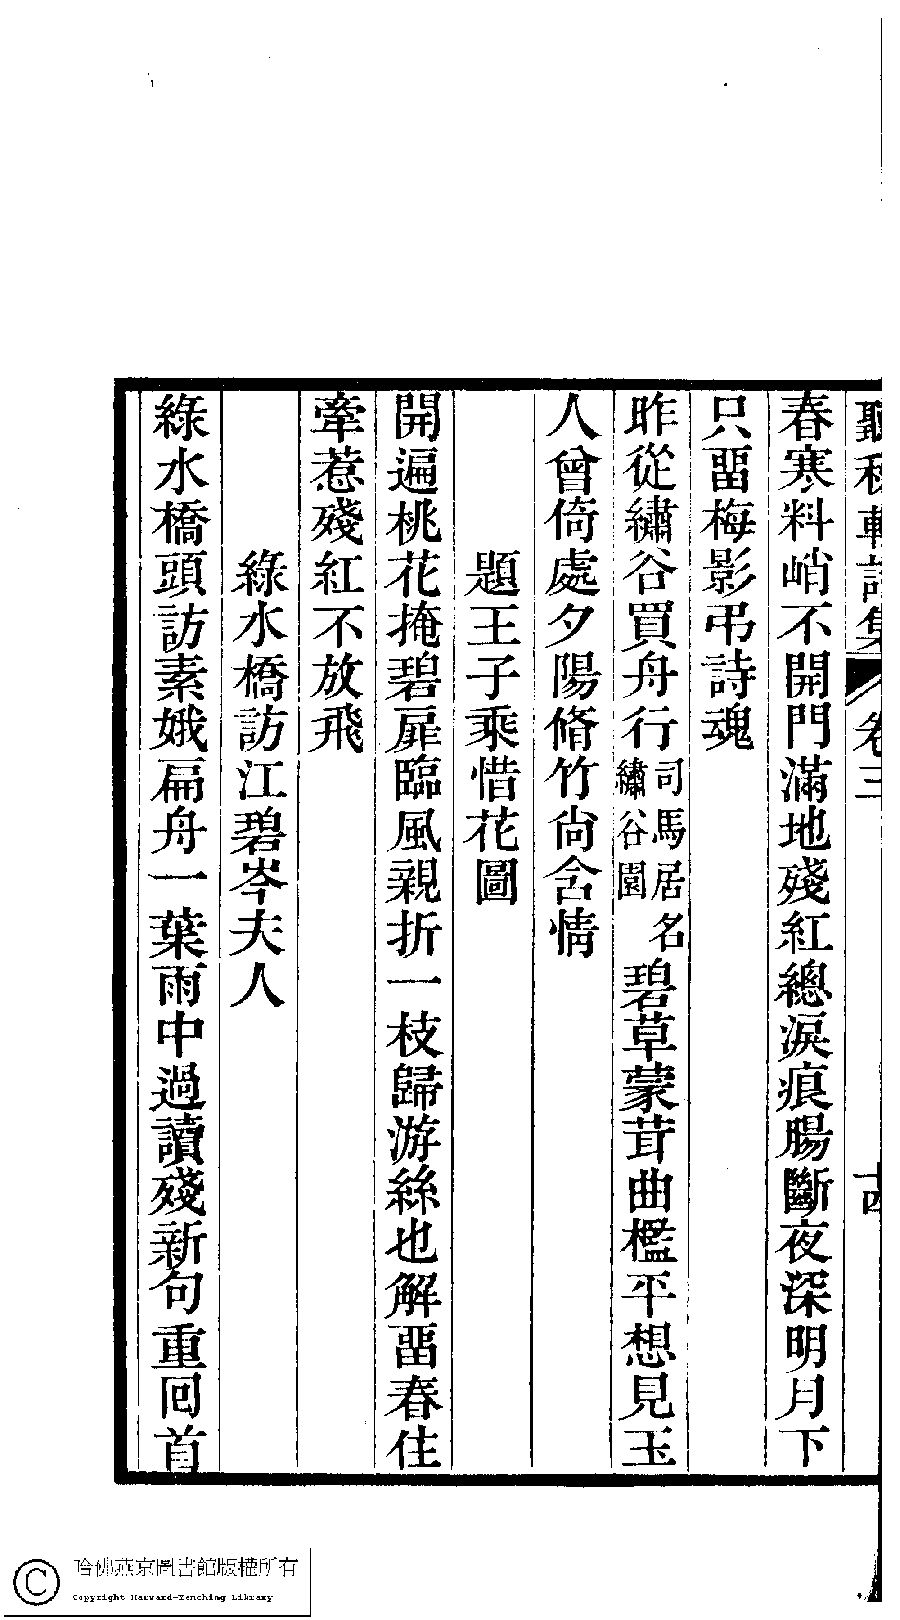 聽秋軒詩集 卷三 十四
春寒料峭不開門滿地殘紅總淚痕腸斷夜深明月下
只畱梅影弔詩魂
昨從繡谷買舟行司馬居名繡谷園碧草蒙茸曲檻平想見玉
人曾倚處夕陽脩竹尙含情
題王子乘惜花圖
開遍桃花掩碧扉臨風親折一枝歸游絲也解畱春住
牽惹殘紅不放飛
綠水橋訪江碧岑夫人
綠水橋頭訪素娥扁舟一葉雨中過讀殘新句重回首
哈佛燕京圖書館版權所有
Copyright Harvard-Yenching Library